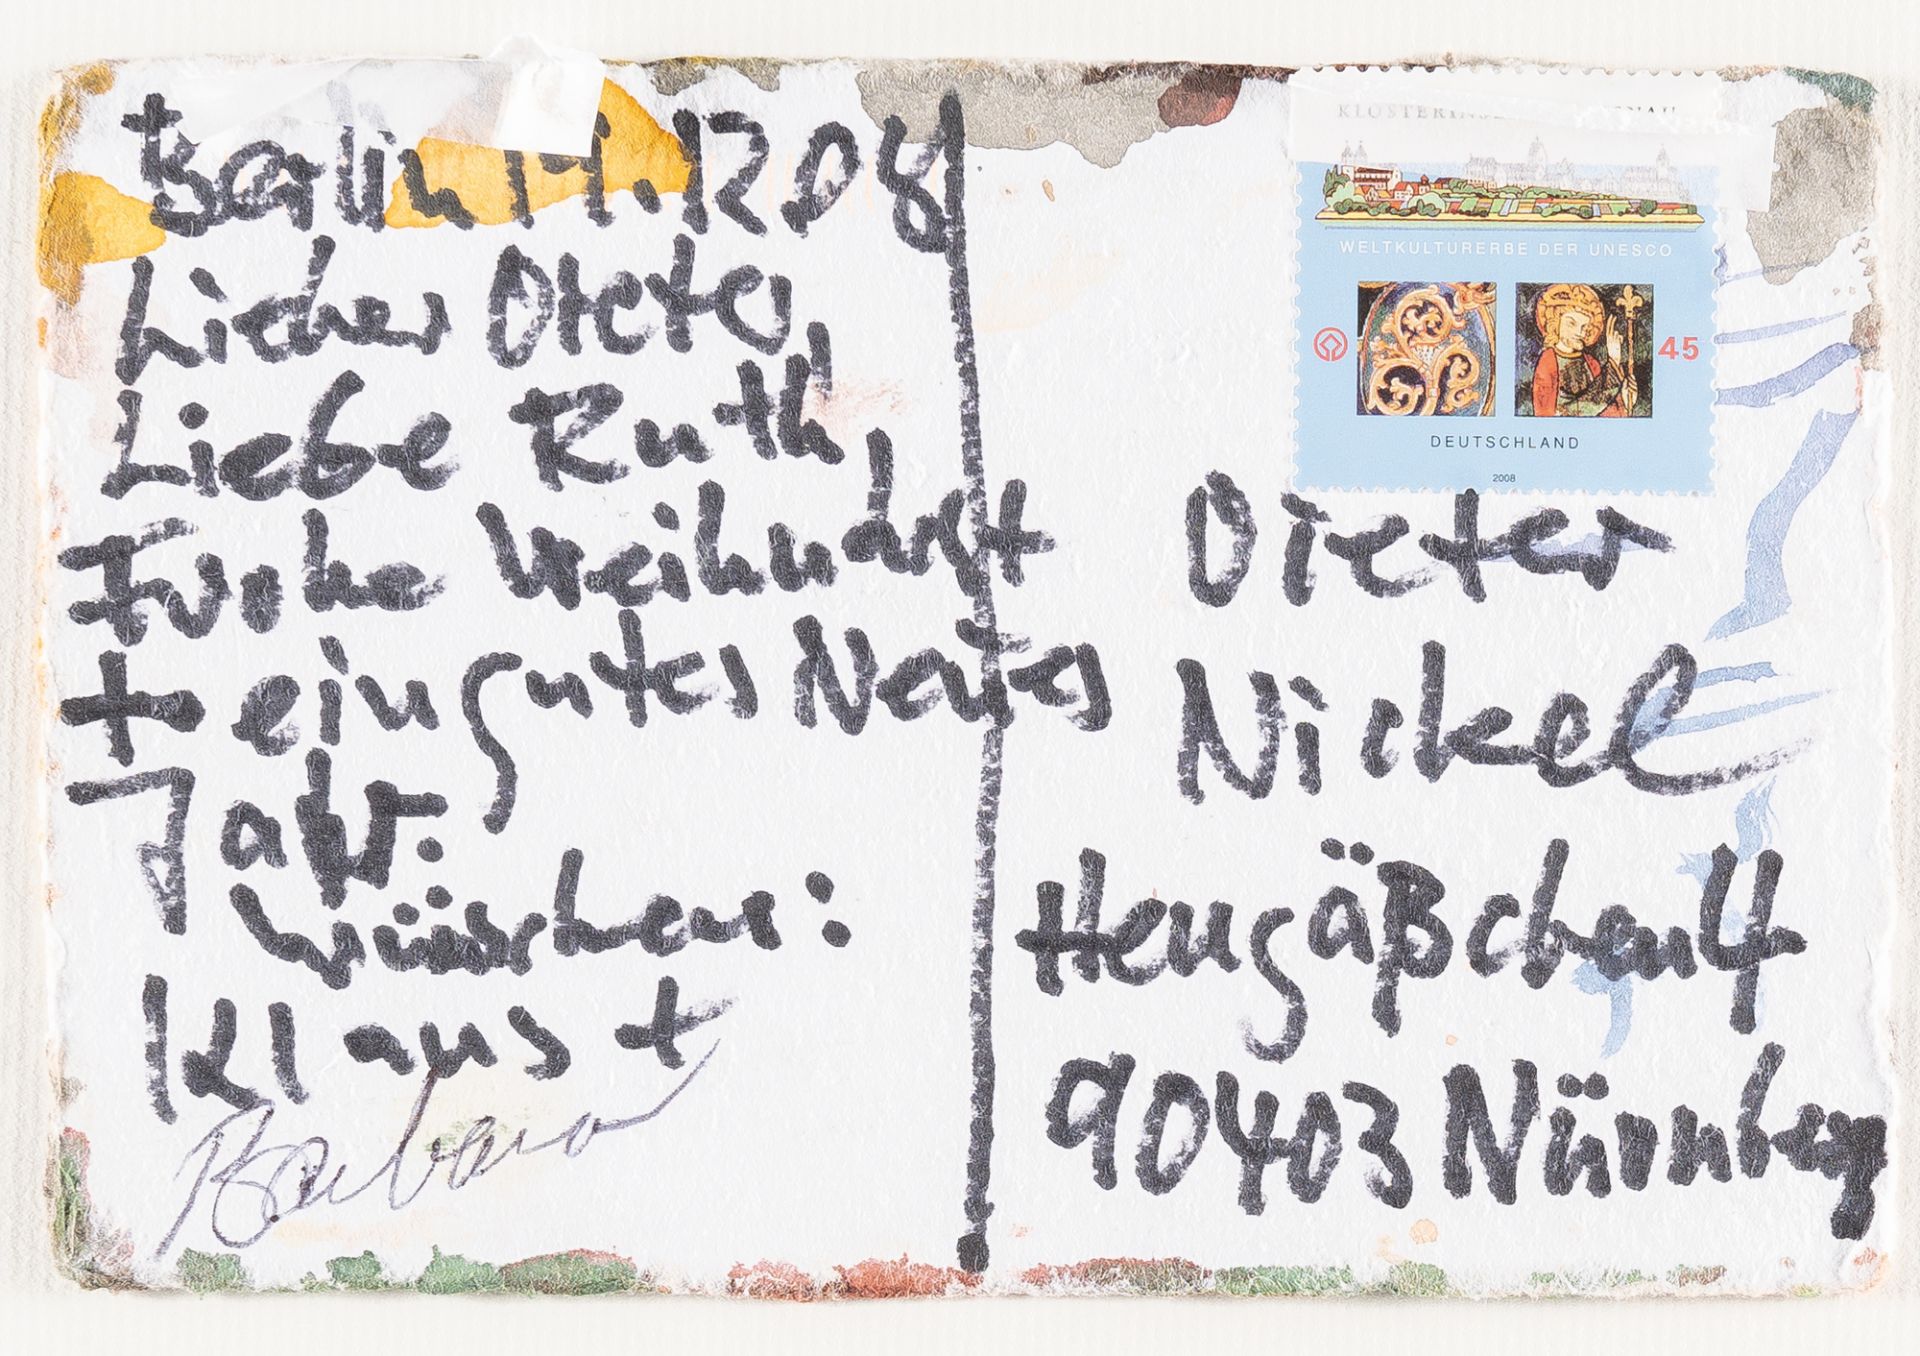 Berlin 14.12.08
Lieber Dieter,
Liebe Ruth,
Frohe Weihnacht
+ ein gutes Neues
Jahr.
wünschen:
Klaus +
Barbara
KLOSTERINSEL
WELTKULTURERBE DER UNESCO
45
DEUTSCHLAND
2008
Dieter
Nickel
Heugäßchen 4
90403 Nürnberg